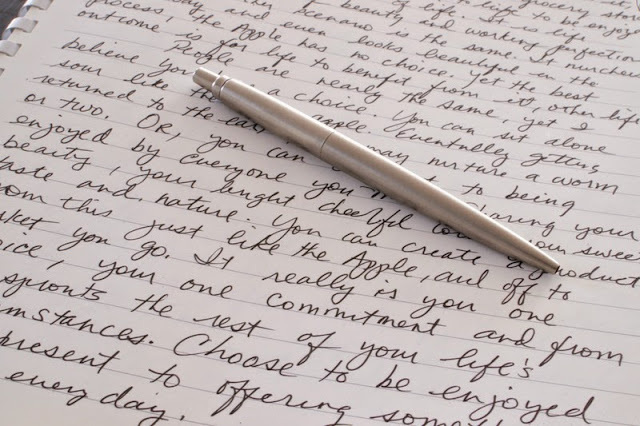 grocery store
life to be enjoyed
of life. It is life
beauty and working perfection
Scenario is the same. It
and even looks beautiful in the
process, the Apple has no choice, yet the best
outcome is for life to benefit from it, other life
People are nearly the same, yet I
believe you is a choice. You can sit alone
sour like the apple. Eventually getting
returned to the may nurture a worm
or two. Or, you can to being
enjoyed by everyone you Sharing your
beauty, your bright cheerful your sweet
taste and nature. You can create a product
from this just like the Apple, and off to
ket you go. It really is you one
oice, your one commitment and from
sprouts the rest of your life's
mstances. Choose to be enjoyed
present to offering
every day.